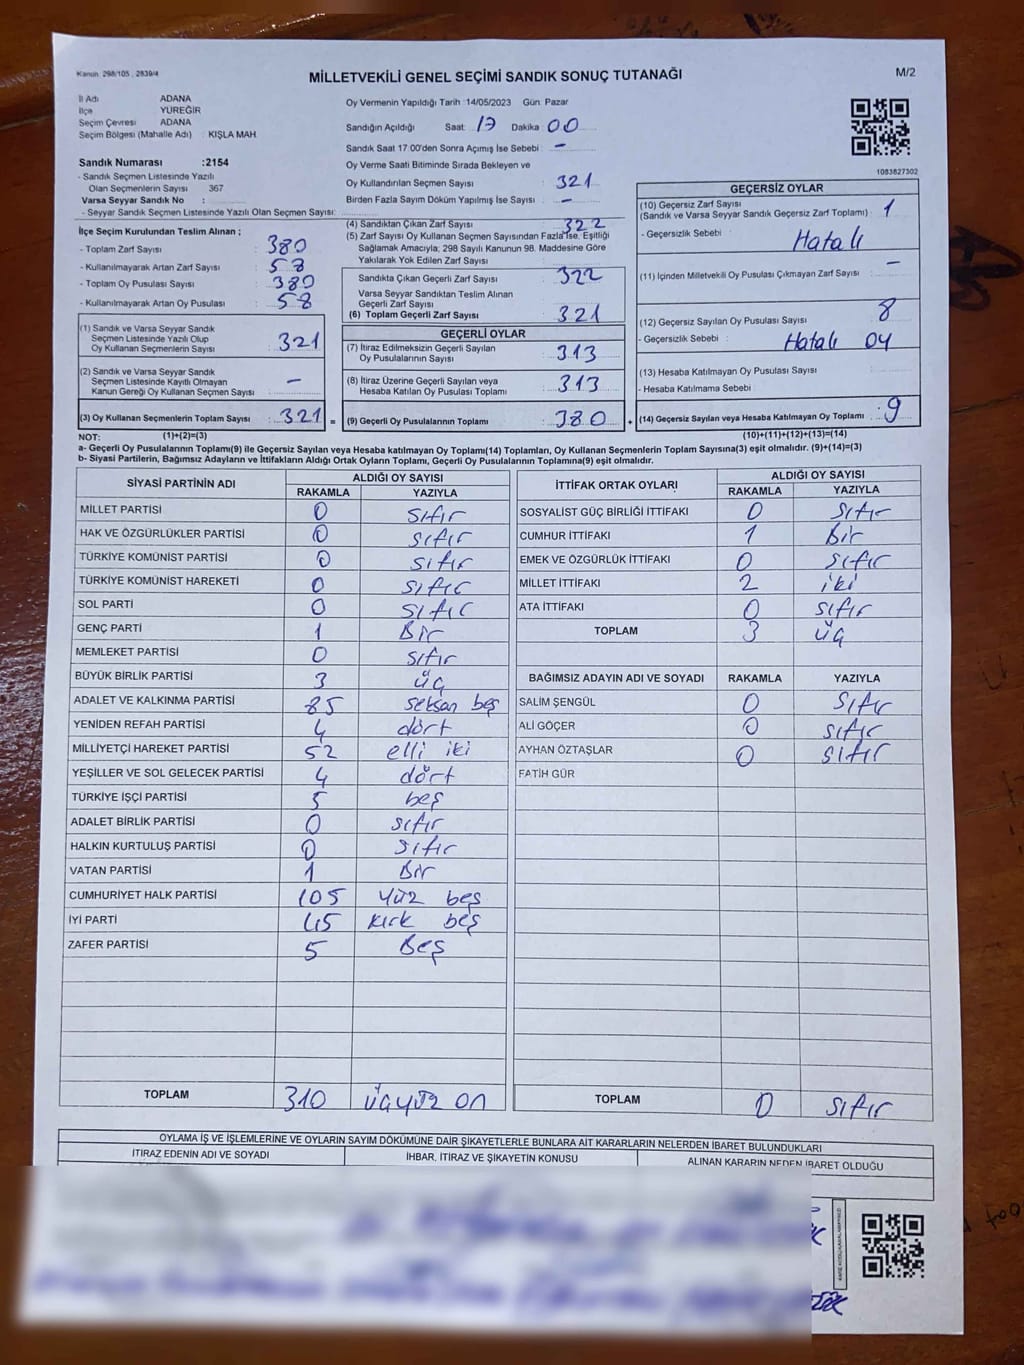 Kanun 298/105 , 2839/4
MİLLETVEKİLİ GENEL SEÇİMİ SANDIK SONUÇ TUTANAĞI
M/2
İl Adı ADANA
İlçe YÜREĞİR
Seçim Çevresi ADANA
Seçim Bölgesi (Mahalle Adı) : KIŞLA MAH
Sandık Numarası :2154
- Sandık Seçmen Listesinde Yazılı
Olan Seçmenlerin Sayısı 367
Varsa Seyyar Sandık No :
- Seyyar Sandık Seçmen Listesinde Yazılı Olan Seçmen Sayısı:
Oy Vermenin Yapıldığı Tarih :14/05/2023 Gün: Pazar
Sandığın Açıldığı Saat: 17 Dakika: 00
Sandık Saat 17:00'den Sonra Açımış İse Sebebi : -
Oy Verme Saati Bitiminde Sırada Bekleyen ve
Oy Kullandırılan Seçmen Sayısı : 321
Birden Fazla Sayım Döküm Yapılmış İse Sayısı : -
1083827302
İlçe Seçim Kurulundan Teslim Alınan ;
- Toplam Zarf Sayısı : 380
- Kullanılmayarak Artan Zarf Sayısı : 58
- Toplam Oy Pusulası Sayısı : 380
- Kullanılmayarak Artan Oy Pusulası : 58
(1) Sandık ve Varsa Seyyar Sandık
Seçmen Listesinde Yazılı Olup
Oy Kullanan Seçmenlerin Sayısı : 321
(2) Sandık ve Varsa Seyyar Sandık
Seçmen Listesinde Kayıtlı Olmayan
Kanun Gereği Oy Kullanan Seçmen Sayısı : -
(3) Oy Kullanan Seçmenlerin Toplam Sayısı : 321 =
(4) Sandıktan Çıkan Zarf Sayısı : 322
(5) Zarf Sayısı Oy Kullanan Seçmen Sayısından Fazla İse, Eşitliği
Sağlamak Amacıyla, 298 Sayılı Kanunun 98. Maddesine Göre
Yakılarak Yok Edilen Zarf Sayısı :
Sandıkta Çıkan Geçerli Zarf Sayısı : 322
Varsa Seyyar Sandıktan Teslim Alınan
Geçerli Zarf Sayısı :
(6) Toplam Geçerli Zarf Sayısı : 321
GEÇERLİ OYLAR
(7) İtiraz Edilmeksizin Geçerli Sayılan
Oy Pusulalarının Sayısı : 313
(8) İtiraz Üzerine Geçerli Sayılan veya
Hesaba Katılan Oy Pusulası Toplamı : 313
(9) Geçerli Oy Pusulalarının Toplamı : 380 +
GEÇERSİZ OYLAR
(10) Geçersiz Zarf Sayısı
(Sandık ve Varsa Seyyar Sandık Geçersiz Zarf Toplamı) : 1
- Geçersizlik Sebebi : Hatalı
(11) İçinden Milletvekili Oy Pusulası Çıkmayan Zarf Sayısı : -
(12) Geçersiz Sayılan Oy Pusulası Sayısı : 8
- Geçersizlik Sebebi : Hatalı oy
(13) Hesaba Katılmayan Oy Pusulası Sayısı :
- Hesaba Katılmama Sebebi :
(14) Geçersiz Sayılan veya Hesaba Katılmayan Oy Toplamı : 9
NOT: (1)+(2)=(3) (10)+(11)+(12)+(13)=(14)
a- Geçerli Oy Pusulalarının Toplamı(9) ile Geçersiz Sayılan veya Hesaba Katılmayan Oy Toplamı(14) Toplamları, Oy Kullanan Seçmenlerin Toplam Sayısına(3) eşit olmalıdır. (9)+(14)=(3)
b- Siyasi Partilerin, Bağımsız Adayların ve İttifakların Aldığı Ortak Oyların Toplamı, Geçerli Oy Pusulalarının Toplamına(9) eşit olmalıdır.
SİYASİ PARTİNİN ADI ALDIĞI OY SAYISI
RAKAMLA YAZIYLA
MİLLET PARTİSİ 0 sıfır
HAK VE ÖZGÜRLÜKLER PARTİSİ 0 sıfır
TÜRKİYE KOMÜNİST PARTİSİ 0 sıfır
TÜRKİYE KOMÜNİST HAREKETİ 0 sıfır
SOL PARTİ 0 sıfır
GENÇ PARTİ 1 Bir
MEMLEKET PARTİSİ 0 sıfır
BÜYÜK BİRLİK PARTİSİ 3 üç
ADALET VE KALKINMA PARTİSİ 85 seksan beş
YENİDEN REFAH PARTİSİ 4 dört
MİLLİYETÇİ HAREKET PARTİSİ 52 elli iki
YEŞİLLER VE SOL GELECEK PARTİSİ 4 dört
TÜRKİYE İŞÇİ PARTİSİ 5 beş
ADALET BİRLİK PARTİSİ 0 sıfır
HALKIN KURTULUŞ PARTİSİ 0 sıfır
VATAN PARTİSİ 1 Bir
CUMHURİYET HALK PARTİSİ 105 yüz beş
İYİ PARTİ 45 kırk beş
ZAFER PARTİSİ 5 Beş
TOPLAM 310 üçyüz on
İTTİFAK ORTAK OYLARI ALDIĞI OY SAYISI
RAKAMLA YAZIYLA
SOSYALİST GÜÇ BİRLİĞİ İTTİFAKI 0 sıfır
CUMHUR İTTİFAKI 1 Bir
EMEK VE ÖZGÜRLÜK İTTİFAKI 0 sıfır
MİLLET İTTİFAKI 2 iki
ATA İTTİFAKI 0 sıfır
TOPLAM 3 üç
BAĞIMSIZ ADAYIN ADI VE SOYADI RAKAMLA YAZIYLA
SALİM ŞENGÜL 0 sıfır
ALİ GÖÇER 0 sıfır
AYHAN ÖZTAŞLAR 0 sıfır
FATİH GÜR
TOPLAM 0 sıfır
OYLAMA İŞ VE İŞLEMLERİNE VE OYLARIN SAYIM DÖKÜMÜNE DAİR ŞİKAYETLERLE BUNLARA AİT KARARLARIN NELERDEN İBARET BULUNDUKLARI
İTİRAZ EDENİN ADI VE SOYADI İHBAR, İTİRAZ VE ŞİKAYETİN KONUSU ALINAN KARARIN NEDEN İBARET OLDUĞU